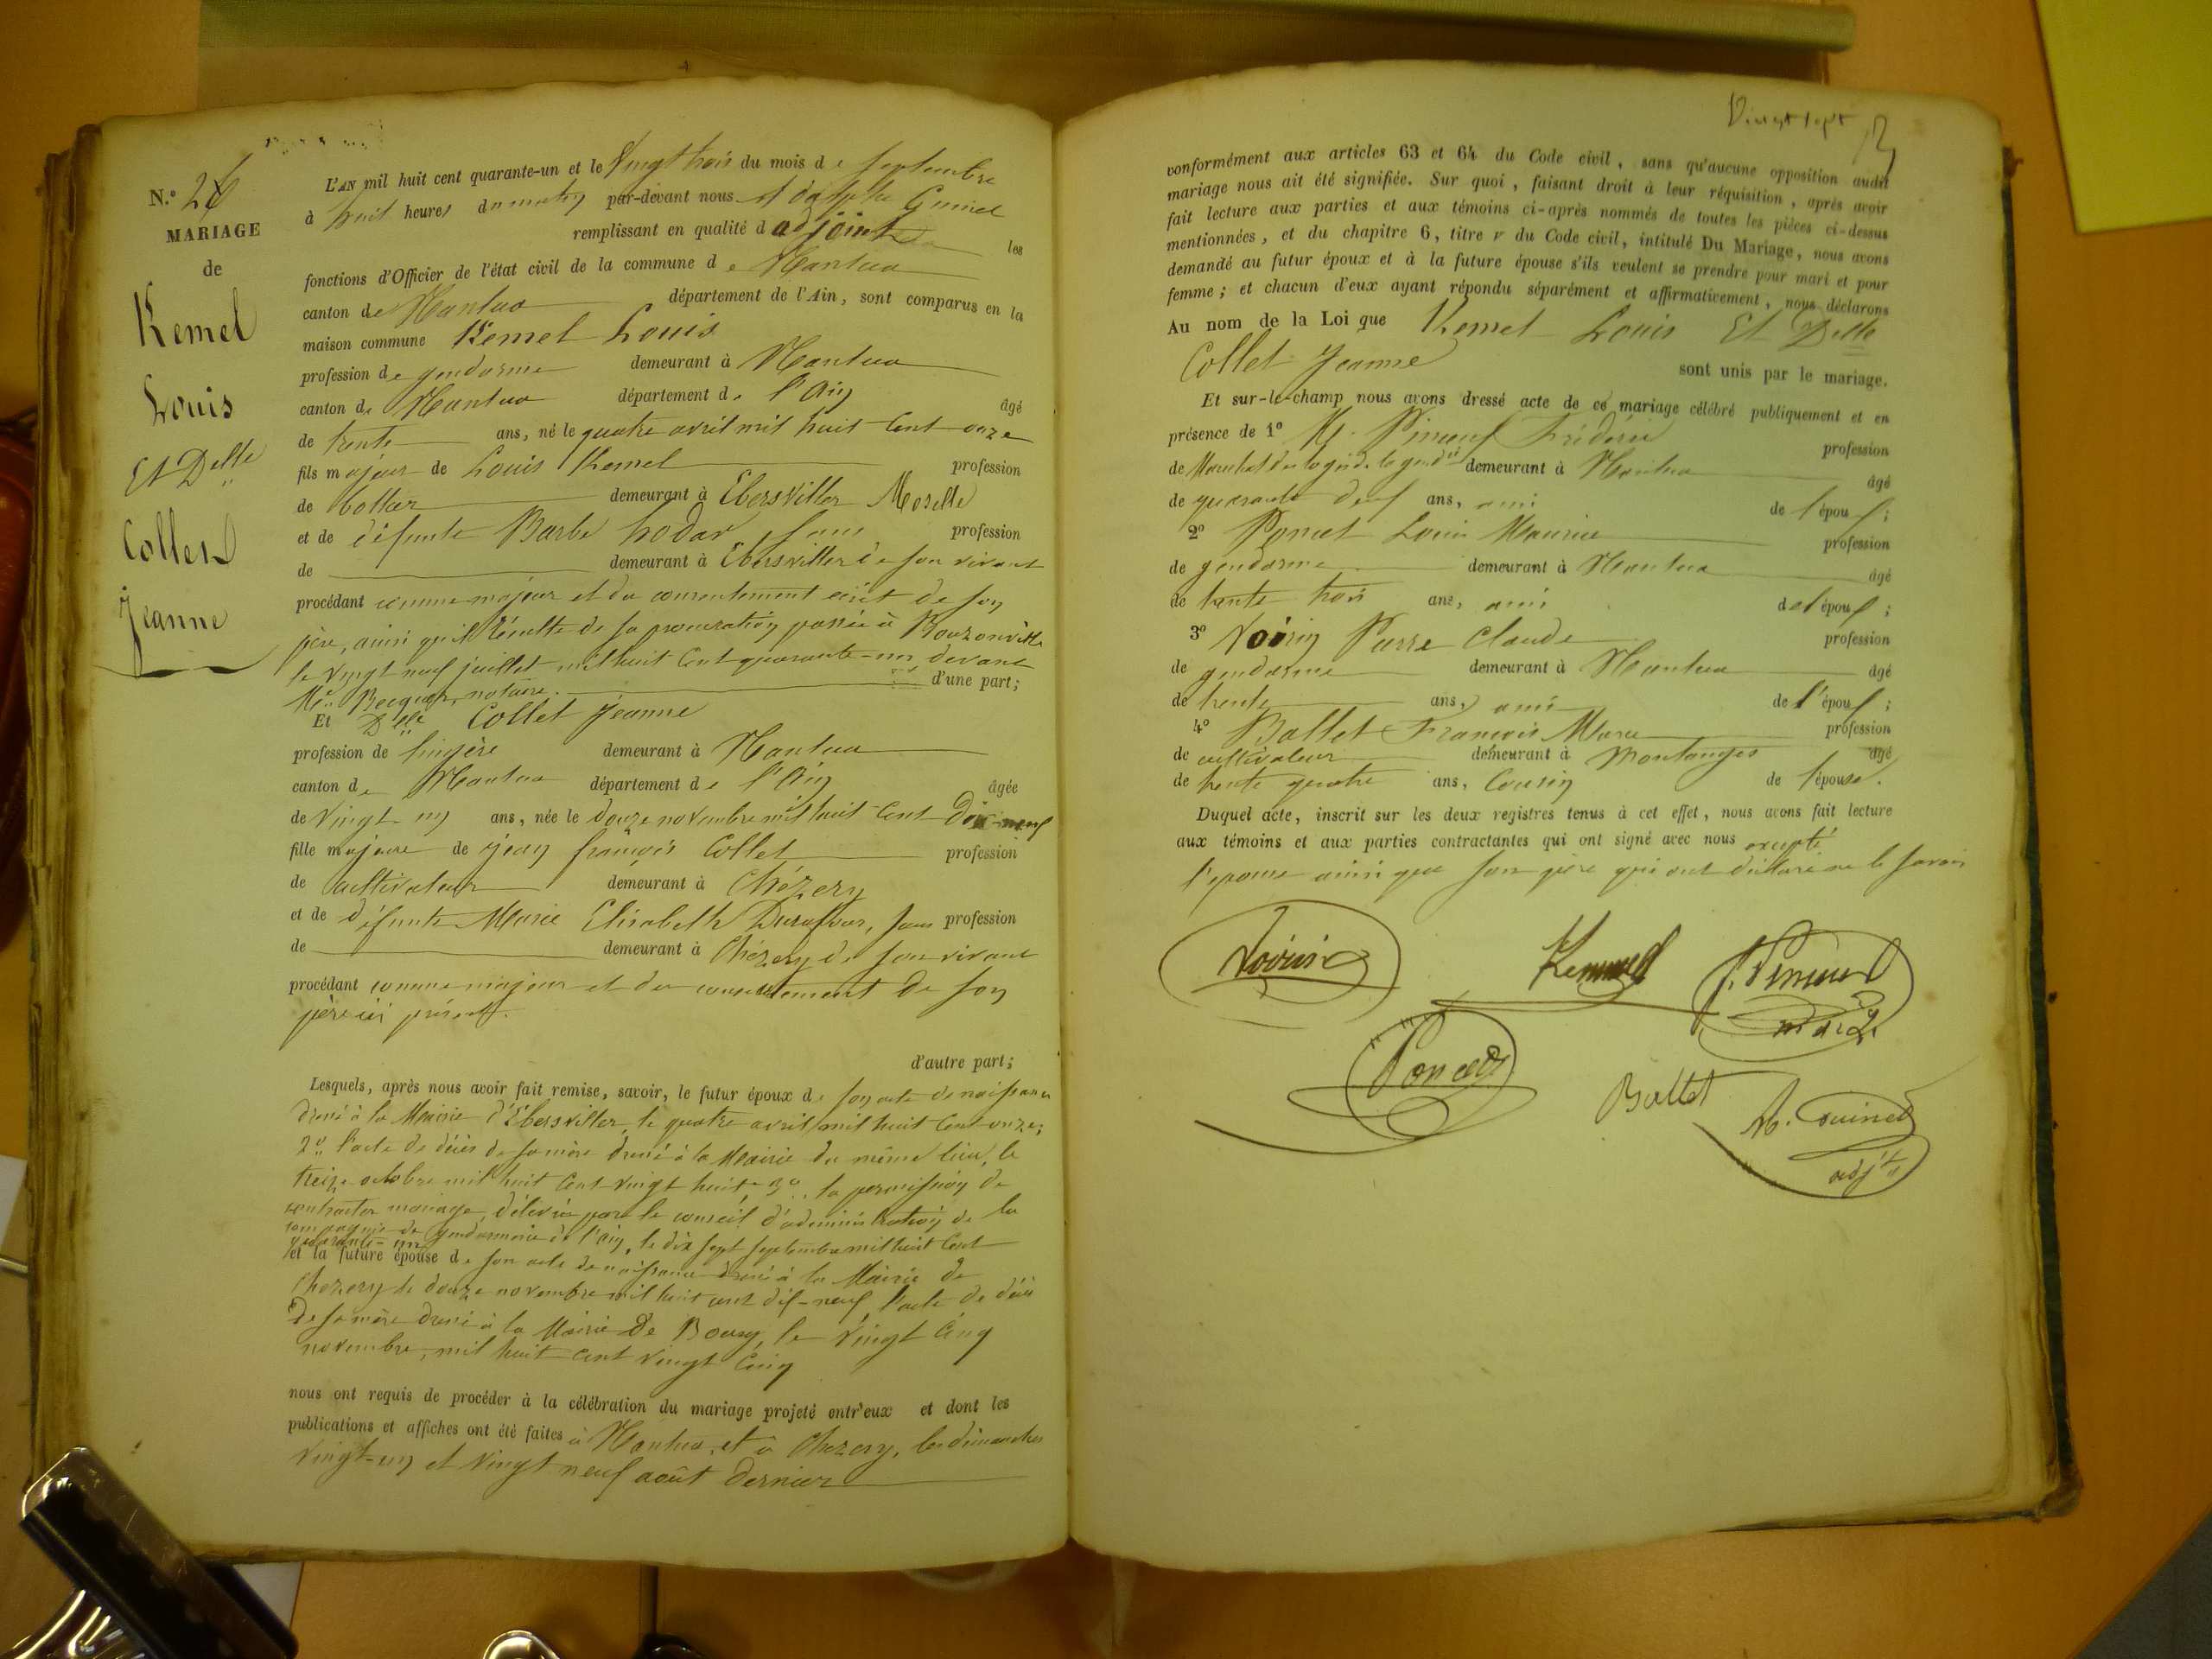 N.° 24
MARIAGE
de
Kemel
Louis
Et Delle
Collet
Jeanne
L'AN mil huit cent quarante-un et le Vingt trois du mois de septembre
à huit heures du matin par-devant nous Adolphe Guinet
remplissant en qualité d'adjoint les
fonctions d'Officier de l'état civil de la commune de Nantua
canton de Nantua département de l'Ain, sont comparus en la
maison commune Kemel Louis
profession de gendarme demeurant à Nantua
canton de Nantua département de l'Ain âgé
de trente ans, né le quatre avril mil huit cent onze
fils majeur de Louis Kemel profession
de demeurant à Ebersviller Moselle
et de défunte Barbe hodar sans profession
de demeurant à Ebersviller de son vivant
procédant comme majeur et du consentement écrit de son
père, ainsi qu'il résulte de sa procuration passée à Bouzonville
le vingt neuf juillet mil huit cent quarante-un, devant
Me Becquer, notaire. d'une part;
Et Delle Collet Jeanne
profession de lingère demeurant à Nantua
canton de Nantua département de l'Ain âgée
de Vingt un ans, née le douze novembre mil huit cent Dix-neuf
fille majeure de jean françois Collet profession
de cultivateur demeurant à Chézery
et de défunte Marie Elisabeth Duraffour, sans profession
de demeurant à Chézery de son vivant
procédant comme majeur et du consentement de son
père ici présent.
d'autre part;
Lesquels, après nous avoir fait remise, savoir, le futur époux de son acte de naissance
dressé à la Mairie d'Ebersviller, le quatre avril mil huit cent onze;
2° l'acte de décès de sa mère dressé à la Mairie du même lieu, le
treize octobre mil huit cent vingt huit, 3° la permission de
contracter mariage, délivrée par le conseil d'administration de la
compagnie de gendarmerie de l'ain, le dix sept septembre mil huit cent
quarante-un
et la future épouse de son acte de naissance dressé à la Mairie de
Chezery le douze novembre mil huit cent dix-neuf, l'acte de décès
de sa mère dressé à la Mairie de Bourg, le vingt cinq
novembre, mil huit cent vingt cinq
nous ont requis de procéder à la célébration du mariage projeté entr'eux et dont les
publications et affiches ont été faites à Nantua, et à Chezery, les dimanches
vingt-un et vingt neuf août dernier
Vingt sept
conformément aux articles 63 et 64 du Code civil, sans qu'aucune opposition audit
mariage nous ait été signifiée. Sur quoi, faisant droit à leur réquisition, après avoir
fait lecture aux parties et aux témoins ci-après nommés de toutes les pièces ci-dessus
mentionnées, et du chapitre 6, titre v du Code civil, intitulé Du Mariage, nous avons
demandé au futur époux et à la future épouse s'ils veulent se prendre pour mari et pour
femme; et chacun d'eux ayant répondu séparément et affirmativement, nous déclarons
Au nom de la Loi que Kemel Louis Et Delle
Collet Jeanne sont unis par le mariage.
Et sur-le-champ nous avons dressé acte de ce mariage célébré publiquement et en
présence de 1° Mr. Frédéric profession
de demeurant à Nantua âgé
de quarante neuf ans, ami de l'époux;
2° Poncet Louis Maurice profession
de gendarme demeurant à Nantua âgé
de trente trois ans, ami de l'époux;
3° Voisin Pierre Claude profession
de gendarme demeurant à Nantua âgé
de trente ans, ami de l'époux;
4° Ballet François Marie profession
de cultivateur demeurant à Montanges âgé
de trente quatre ans, Cousin de l'épouse.
Duquel acte, inscrit sur les deux registres tenus à cet effet, nous avons fait lecture
aux témoins et aux parties contractantes qui ont signé avec nous excepté
l'épouse ainsi que son père qui ont déclaré ne le savoir
Voisin
Kemmel
Poncet
Ballet
A. Guinet
adjt